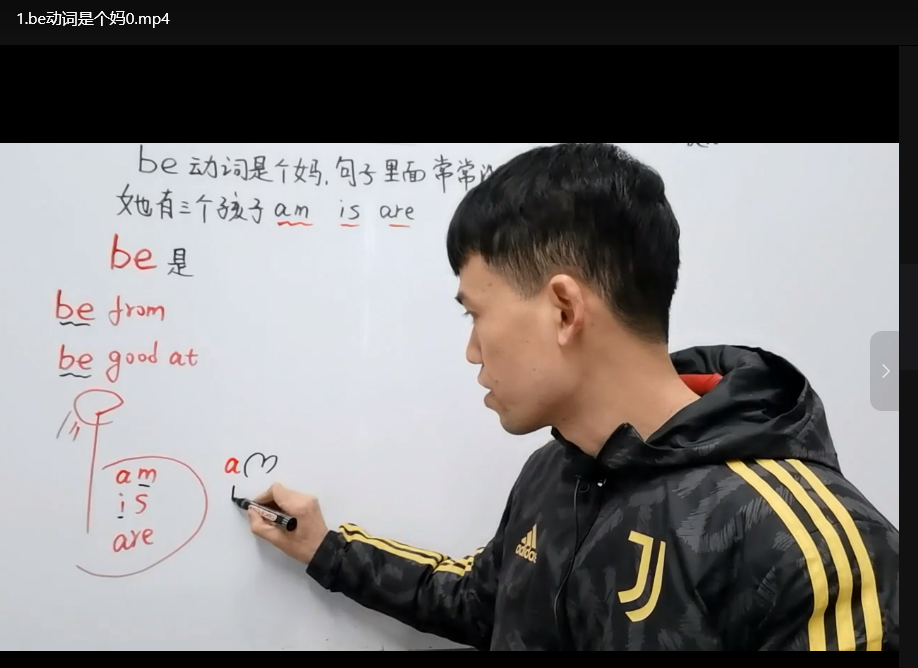 1.be动词是个妈0.mp4
be动词是个妈,句子里面常常
她有三个孩子 am is are
be 是
be from
be good at
am
is
are
am
adidas